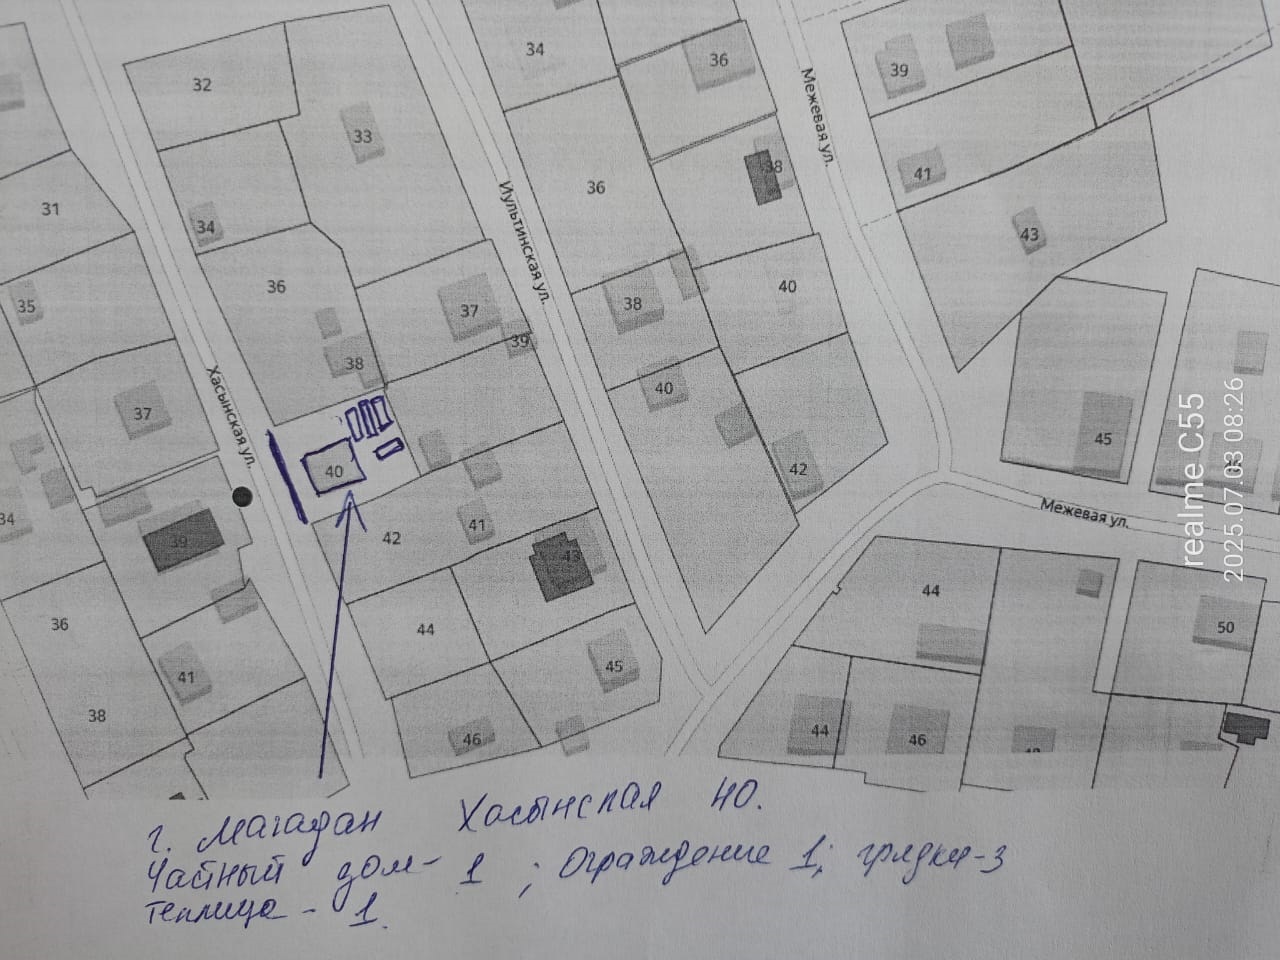 32
33
34
31
34
36
35
37
38
39
37
40
39
34
42
41
43
36
44
45
41
38
46
34
36
36
38
38
40
40
42
39
41
43
45
44
50
44
46
Хасынская ул.
Иультинская ул.
Межевая ул.
Межевая ул.
realme C55
2025.07.03 08:26
г. Магадан Хасынская 40.
Частный дом- 1 ; Ограждение 1; грядки-3
теплица - 1.